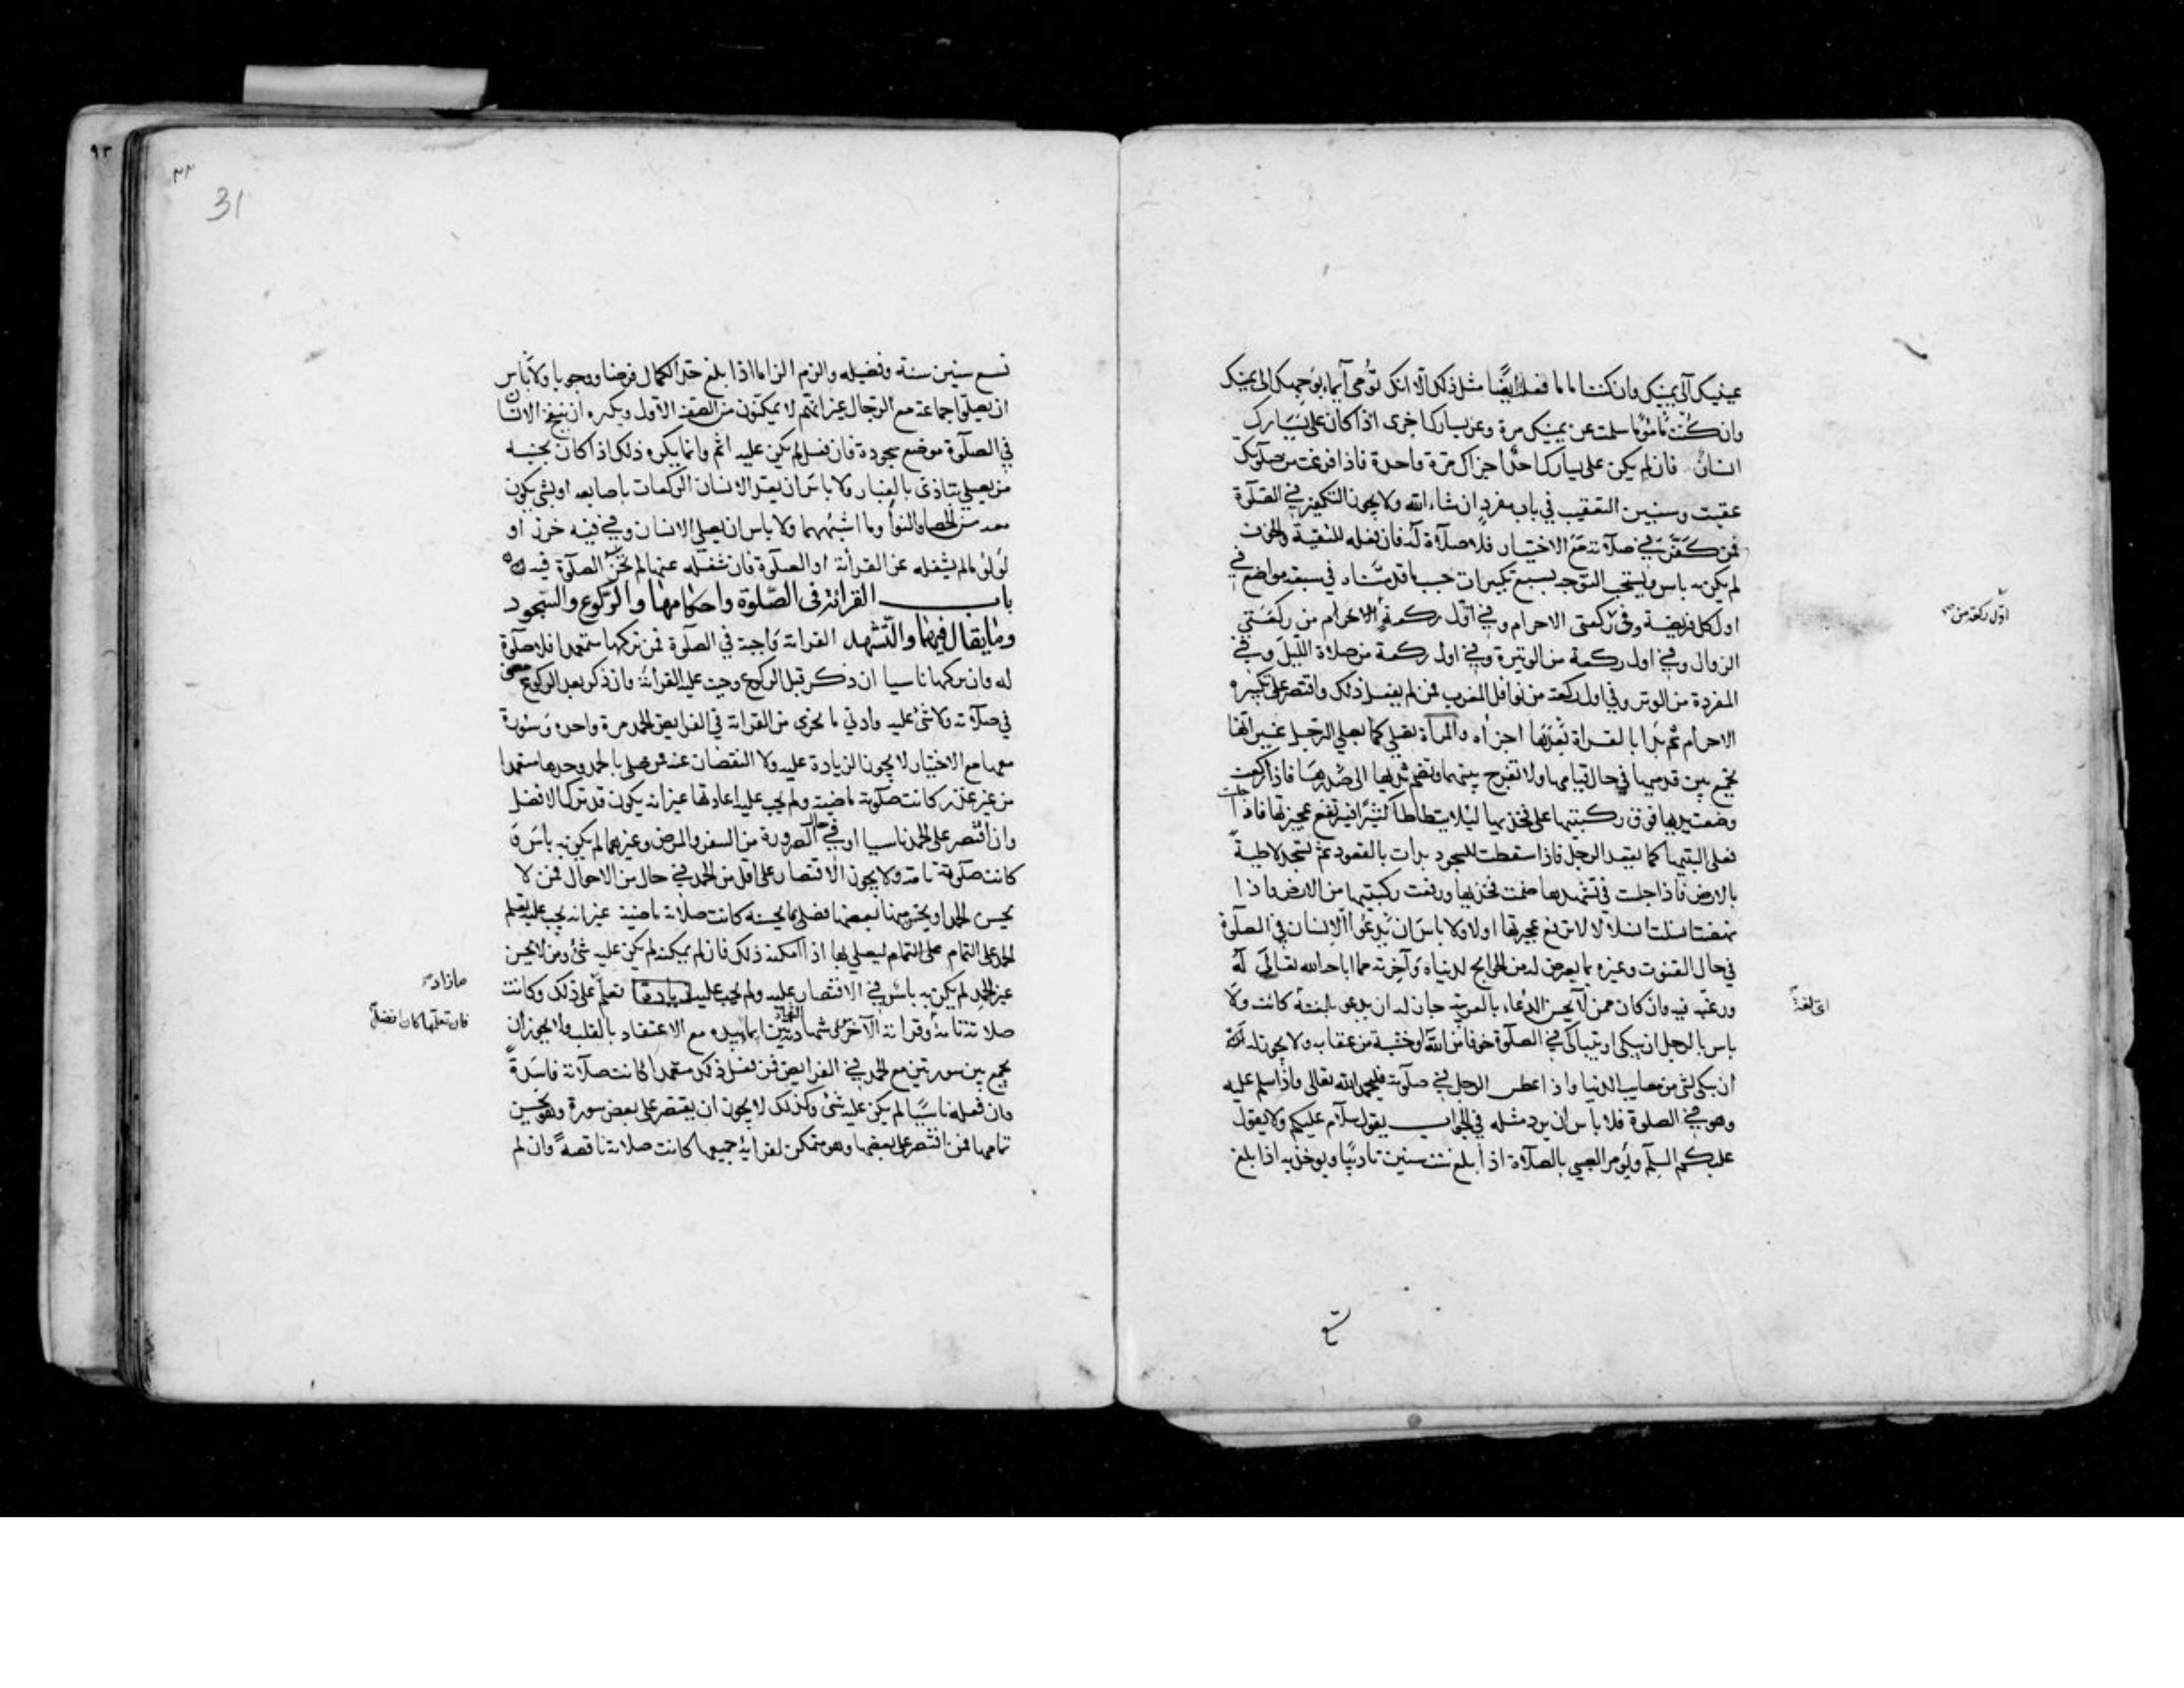 عينيك الى يمينك وان كنت اماما فعلت ايضا مثل ذلك الا انك تومى ايماء بوجهك الى يمينك
وان كنت ماموما سلمت عن يمينك مرة وعن يسارك اخرى اذا كان على يسارك
انسان فان لم يكن على يسارك احد اجزاك مرة واحدة فاذا فرغت من صلوتك
عقبت وسنبين التعقيب في باب مفرد ان شاء الله ولا يجوز التكفير في الصلوة
فمن كفر في صلاته مع الاختيار فلا صلاة له فان فعله للتقية والخوف
لم يكن به باس ويستحب التوجه بسبع تكبيرات حسب ما قدمناه في سبعة مواضع في
اول كل فريضة وفي ركعتى الاحرام وفي اول ركعة من ركعتي
اول ركعة من
الزوال وفي اول ركعة من الوتيرة وفي اول ركعة من صلاة الليل وفي
المفردة من الوتر وفي اول ركعة من نوافل المغرب فمن لم يفعل ذلك واقتصر على تكبيرة
الاحرام ثم بدا بالقراة بعدها اجزاه والمراة تصلي كما يصلي الرجل غير انها
تجمع بين قدميها في حال قيامها ولا تفرج بينهما وتضم ثدييها الى صدرها فاذا ركعت
وضعت يديها فوق ركبتيها على فخذيها ليلا يتطاطا كثيرا فيرتفع عجيزتها فاذا جلست
فعلى اليتيها كما يقعد الرجل فاذا سقطت للسجود بدات بالقعود ثم تسجد لاطية
بالارض فاذا جلست في تشهدها ضمت فخذيها ورفعت ركبتيها من الارض واذا
نهضت انسلت انسلالا لا ترفع عجيزتها اولا ولا باس ان يدعوا الانسان في الصلوة
في حال القنوت وغيره بما يعرض له من الحوايج لدنياه وآخرته مما اباحه الله تعالى له
ورغبه فيه وان كان ممن لا يحسن الدعاء بالعربية جاز له ان يدعو بلغته كانت ولا
اي لغة
باس بالرجل ان يبكى او يتباكى في الصلوة خوفا من الله وخشية من عقابه ولا يجوز له
ان يبكى لشى من مصايب الدنيا واذا عطس الرجل في صلوته فليحمد الله تعالى واذا سلم عليه
وهو في الصلوة فلا باس ان يرد مثله في الجواب يقول سلام عليكم ولا يقول
عليكم السلم ويومر الصبي بالصلاة اذا بلغ ست سنين تاديبا ويوخذ به اذا بلغ
31
تسع سنين سنة وفضيلة والزم الزاما اذا بلغ حد الكمال فرضا ووجوبا ولا باس
ان يصلوا جماعة مع الرجال غير انهم لا يمكنون من الصف الاول ويكره ان ينفخ الانسان
في الصلوة موضع سجوده فان فعل لم يكن عليه اثم وانما يكره ذلك اذا كان بجنبه
من يصلي يتاذى بالغبار ولا باس ان يعد الانسان الركعات باصابعه او بشى يكون
معه من الحصا والنوا وما اشبههما ولا باس ان يصلي الانسان وفي فيه خرز او
لولو ما لم يشغله عن القرأة او الصلوة فان شغله عنها لم تجز الصلوة فيه
باب القرائة في الصلوة واحكامها والركوع والسجود
وما يقال فيهما والتشهد القراة واجبة في الصلوة فمن تركها متعمدا فلا صلوة
له وان تركها ناسيا ان ذكر قبل الركوع وجبت عليه القرأة وان ذكر بعد الركوع مضى
في صلاته ولا شى عليه وادني ما يجزى من القراة في الفرايض الحمد مرة واحدة وسورة
معها مع الاختيار لا يجوز الزيادة عليه ولا النقصان عنه فمن صلى بالحمد وحدها متعمدا
من غير عذر كانت صلوته ماضية ولم يجب عليه اعادتها غير انه يكون قد ترك الافضل
وان اقتصر على الحمد ناسيا او في حال الضرورة من السفر والمرض وغيرهما لم يكن به باس و
كانت صلوته تامة ولا يجوز الاقتصار على اقل من الحمد في حال من الاحوال فمن لا
يحسن الحمد او يحسن منها بعضها فصلى بما يحسنه كانت صلاته ماضية غير انه يجب عليه تعلم
الحمد على التمام ليصلي بها اذا امكنه ذلك فان لم يمكنه لم يكن عليه شى ومن لا يحسن
غير الحمد لم يكن به باس في الاقتصار عليه ولم يجب عليه زيادة تعلم على ذلك وكانت
ما زاد
صلاته تامة وقراة الآخرس شهادتين ايماء بيده مع الاعتقاد بالقلب ولا يجوز ان
فان تعلمها كان افضل
يجمع بين سورتين مع الحمد في الفرايض فمن فعل ذلك متعمدا كانت صلاته فاسدة
وان فعله ناسيا لم يكن عليه شى وكذلك لا يجوز ان يقتصر على بعض سورة وهو يحسن
تمامها فمن اقتصر على بعضها وهو متمكن لقراية جميعها كانت صلاته ناقصة وان لم